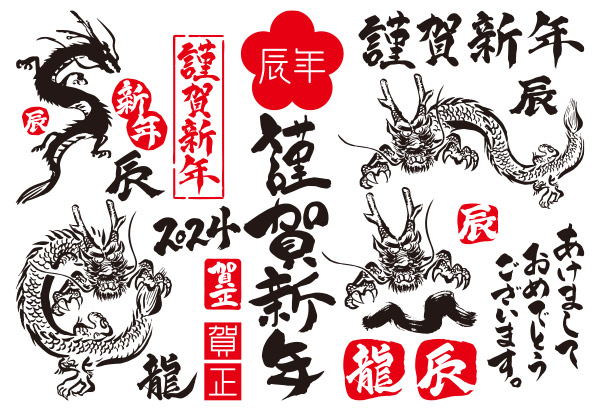 辰
新年
辰
謹賀新年
辰年
謹賀新年
2024
賀正
賀正
龍
謹賀新年
辰
辰
龍
辰
あけまして
おめでとう
ございます。